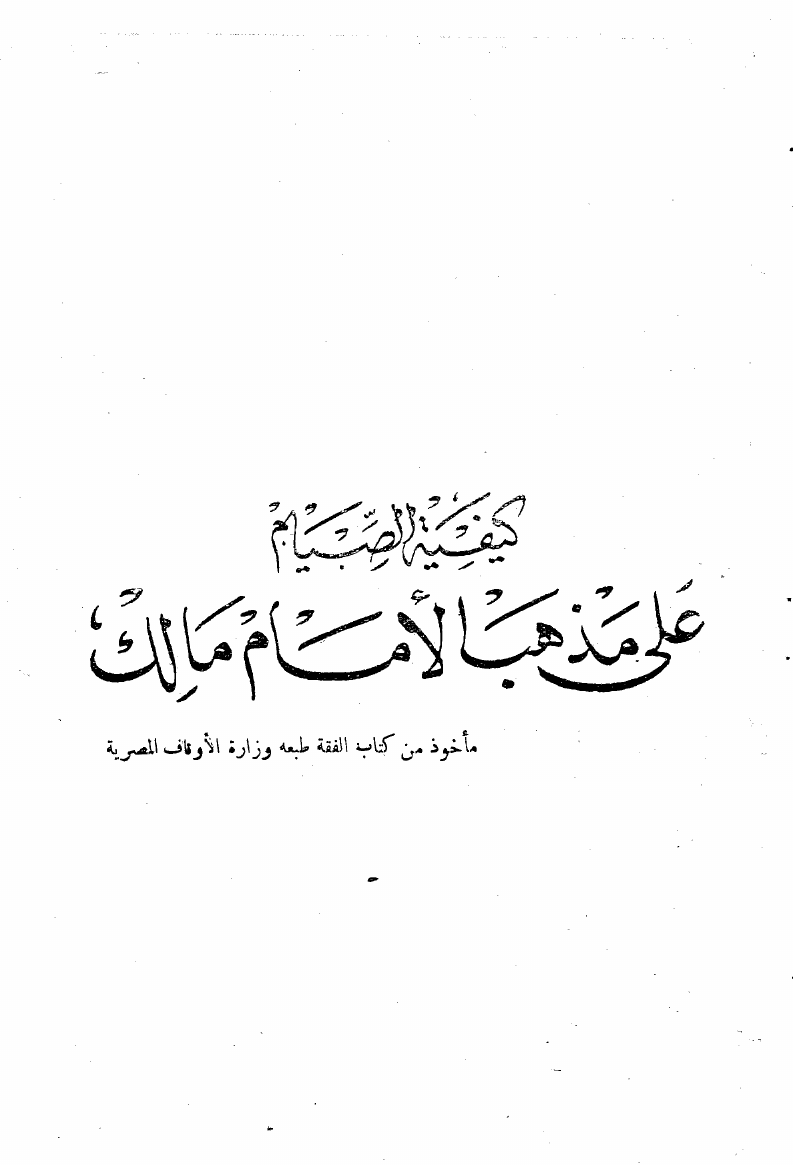 كيفية الصيام
على مذهب الأمام مالك
مأخوذ من كتاب الفقة طبعه وزارة الأوقاف المصرية